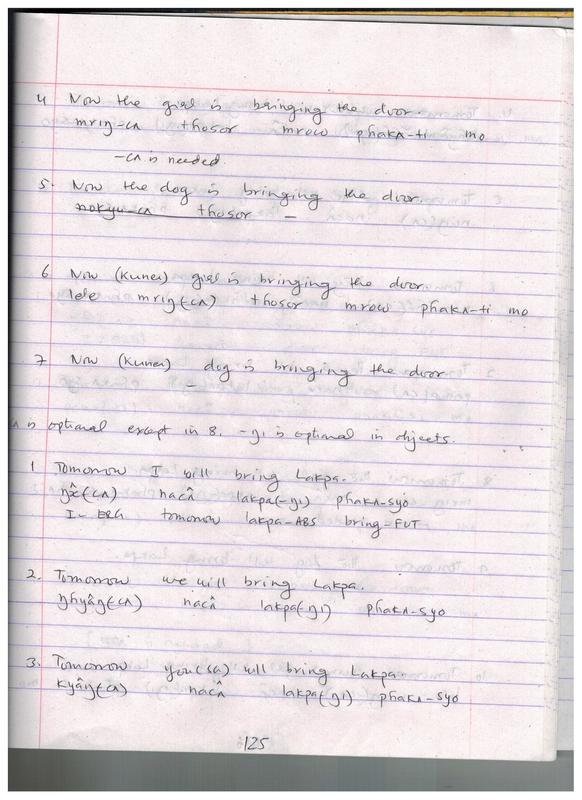 4 Now the girl is bringing the door.
mrıŋ-cʌ thosor mrow phakʌ-ti mo
-cʌ is needed.
5. Now the dog is bringing the door.
nokyu-cʌ thosor –
6 Now (Kunes) girl is bringing the door
lele mrıŋ(cʌ) thosor mrow phakʌ-ti mo
7 Now (Kunes) dog is bringing the door
–
ʌ is optional except in 8. -ŋı is optional in objects.
1 Tomorrow I will bring Lakpa.
(cʌ) nacʌ̂ lakpa(-ŋı) phakʌ-syo
I-ERG tomorrow lakpa-ABS bring-FUT
2. Tomorrow we will bring Lakpa.
ŋhyâŋ(cʌ) nacʌ̂ lakpa(ŋı) phakʌ-syo
3. Tomorrow you(sg) will bring Lakpa.
kyâŋ(cʌ) nacʌ̂ lakpa(ŋı) phakʌ-syo
125